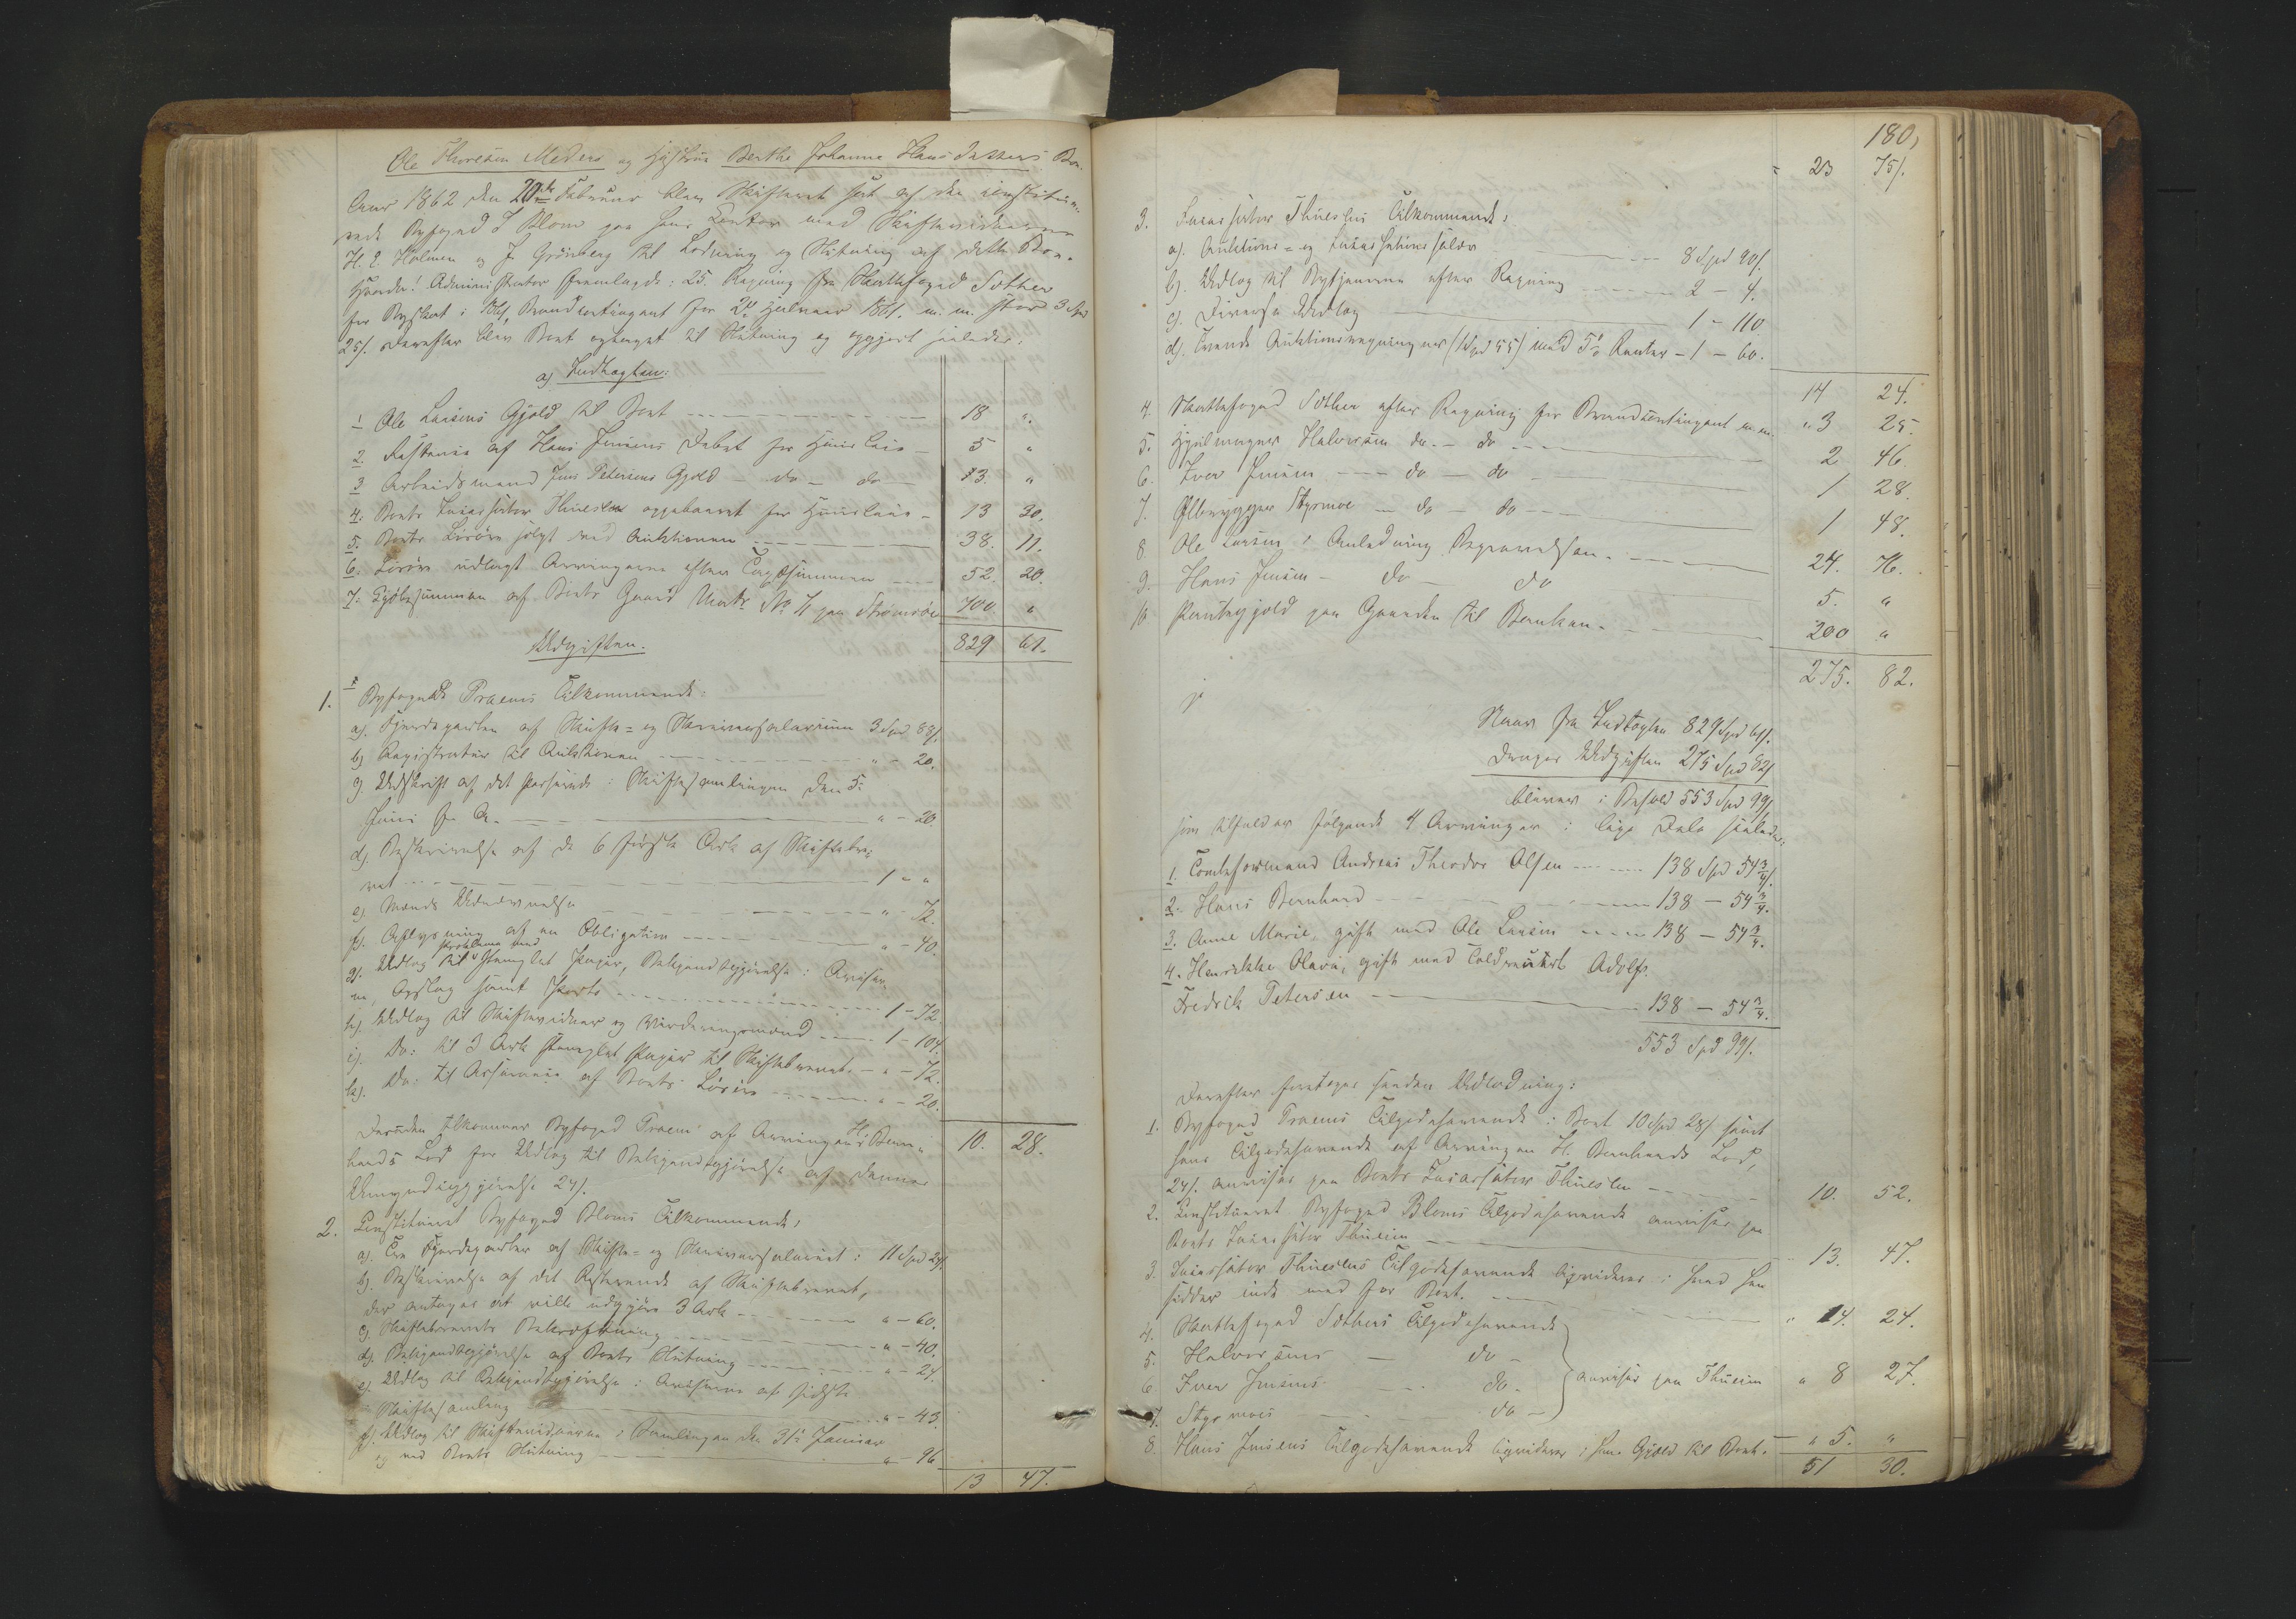 Ole Thoresen Meders og Hustrue Berthe Johanne Hansdatters Bo.
Aar 1862 den 20de Februar blev Skifteret sat af den constitue-
rede Byfoged J Blom paa hans Contor med Skiftevidnerne
H. E. Holmen og J Grönberg til Lodning og Slutning af dette Bo.
Hvorda! Administrator fremlagde: 25. Regning fra Skattefoged Sother
for Byskat i 1861, Brandcontingent for 2det Halvaar 1861. m. m. stor 3 Spd
25/. Derefter blev Boet optaget til Slutning og opgjort saaledes:
a) Indtægten:
1 Ole Larsens Gjeld til Boet 18 "
2. Restance af Hans Jensens Debet for Huusleie 5 "
3 Arbeidsmand Jens Petersens Gjeld - do - do 13. "
4: Boets Incassator Thueslen oppebaaret for Huusleie - 13 30.
5. Boets Lösöre solgt ved Auktionen 38. 11.
6. Lösöre udlagt Arvingerne efter Taxtsummen 52. 20.
7. Kjöbesummen af Boets Gaard Matr No 71 paa Strömsöe 700 "
829 61.
Udgiften.
1. Byfoged Praems Tilkommende:
a). Fjerdeparten af Skifte- og Skriversalarium 3 Spd 88/.
b) Registratur til Auktionen " - 20.
c) Udskrift af det passerede i Skiftesamlingen den 5.
Juni f. A. " - 20.
d). Beskrivelse af de 6 förste Ark af Skiftebre-
vet 1 - "
e). Mænds Udnævnelse " - 72.
f). Aflysning af en Obligation " - 40.
g). Udlog til Proklama med stemplet Papir, Bekjendtgjörelse i Aviser-
ne, Opslag samt Porto 1 - 72.
h). Udlog til Skiftevidner og Vurderingsmænd 1 - 104.
i). Do: til 3 Ark stemplet Papir til Skiftebrevet " - 72.
k). Do: til Assurance af Boets Lösöre " - 20.
10. 28.
Desuden tilkommer Byfoged Praem af Arvingen H. Bern-
hards Lod for Udlog til Bekjendtgjörelse af dennes
Umyndiggjörelse 24/.
2. Constitueret Byfoged Bloms Tilkommende:
a). Tre Fjerdeparter af Skifte- og Skriversalariet: 11 Spd 24/.
b). Beskrivelse af det Resterende af Skiftebrevet,
der antages at ville udgjöre 3 Ark " - 60.
c). Skiftebrevets Bekræftning " - 40.
d). Bekjendtgjörelse af Boets Slutning " - 24.
e). Udlog til Bekjendtgjörelse i Aviserne af sidste
Skiftesamling " - 43.
f). Udlog til Skiftevidnerne i Samlingen den 31te Januar
og ved Boets Slutning " - 96
13 47.
180,
23 75/.
3. Incassator Thueslens Tilkommende:
a). Auktions- og Incassationssalær 8 Spd 90/.
b). Udlog til Bytjenerne efter Regning 2 - 4.
c). Diverse Udlog 1 - 110
d). Tvende Auktionsregninger (1 Spd 55) med Renter - 1 - 60.
14 24.
4. Skattefoged Sother efter Regning for Brandcontingent m. m. " 3 25.
5. Hjulmager Halvorsen do. - do 2 46.
6. Iver Jensen do - do 1 28.
7. Ölbrygger Styrmoe - do - do 1 48.
8. Ole Larsen i Anledning Begravelsen. 24. 76.
9. Hans Jensen - do - do 5. "
10 Pantegjeld paa Gaarden til Banken. 200 "
275. 82.
Naar fra Indtægten 829 Spd 61/.
drages Udgiften 275 Spd 82/
bliver i Behold 553 Spd 99/.
som tilfalder fölgende 4 Arvinger i lige Dele saaledes:
1. Tomteformand Andreas Theodor Olsen 138 Spd 54 3/4/.
2. Hans Bernhard 138 - 54 3/4.
3. Anne Marie, gift med Ole Larsen 138 - 54 3/4.
4. Henrikke Olava, gift med Toldrorsk. Adolf
Fredrik Petersen 138 - 54 3/4.
553 Spd 99/.
Derefter foretoges saadan Udlodning:
1. Byfoged Praems Tilgodehavende i Boet 10 Spd 28/ samt
hans Tilgodehavende af Arvingen H. Bernhards Lod,
24/. anvises paa Boets Incassator Thueslen 10. 52.
2. Constitueret Byfoged Bloms Tilgodehavende anvises paa
Boets Incassator Thueslen 13. 47.
3. Incassator Thueslens Tilgodehavende liqvideres i hvad han
sidder inde med for Boet. " 14. 24.
4. Skattefoged Sothers Tilgodehavende
5. Halvorsens - do -
6 Iver Jensens - do.
7. Styrmoes - do -
anvises paa Thueslen " 8 27.
8. Hans Jensens Tilgodehavende liqvideres i hans Gjæld til Boet. " 5. "
51 30.